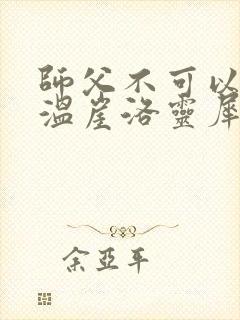 師父不可以
溫崖洛靈犀
余亞平